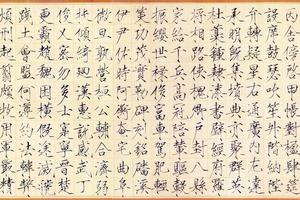 丙舍傍啟甲帳對楹肆筵
設席鼓瑟吹笙升階納陛
弁轉疑星右通廣內左達
承明既集墳典亦聚群英
杜稿鍾隸漆書壁經府羅
將相路俠槐卿戶封八縣
家給千兵高冠陪輦驅轂
振纓世祿侈富車駕肥輕
策功茂實勒碑刻銘磻溪
伊尹佐時阿衡奄宅曲阜
微旦孰營桓公匡合濟弱
扶傾綺迴漢惠說感武丁
俊乂密勿多士寔寧晉楚
更霸趙魏困橫假途滅虢
踐土會盟何遵約法韓弊
煩刑起翦頗牧用軍最精